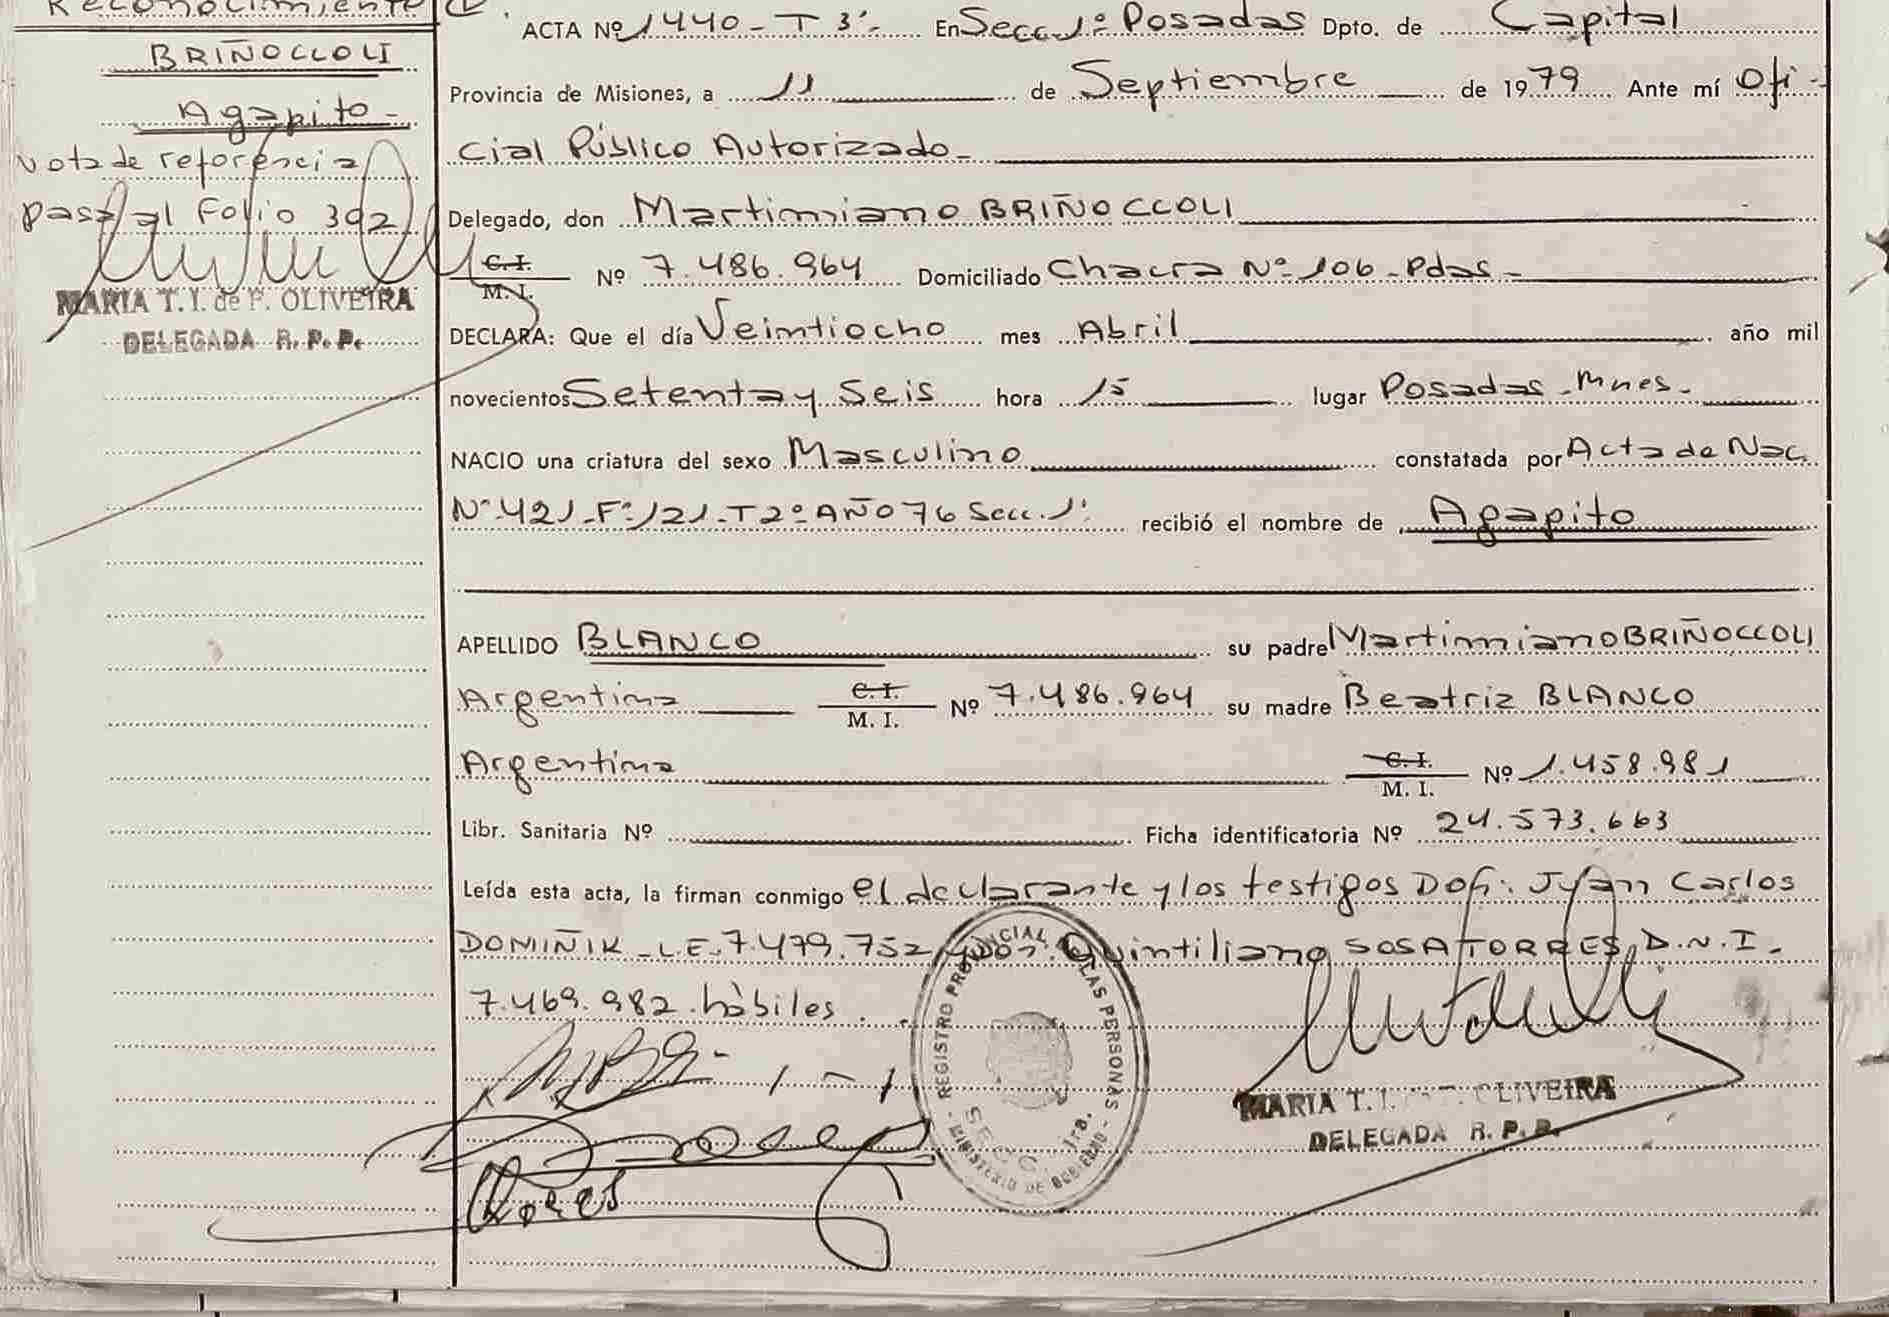 Reconocimiento
BRIÑOCCOLI
Agapito -
Nota de referencia
pasa al Folio 392
MARIA T. I. de F. OLIVEIRA
DELEGADA R. P. P.
ACTA Nº 1440 - T 3º - En Secc. 1º Posadas Dpto. de Capital
Provincia de Misiones, a 11 de Septiembre de 1979 Ante mí Ofi -
cial Público Autorizado -
Delegado, don Martimiano BRIÑOCCOLI
C. I.
M. I. Nº 7.486.964 Domiciliado Chacra Nº 106 - Pdas -
DECLARA: Que el día Veintiocho mes Abril año mil
novecientos Setenta y Seis hora 15 lugar Posadas - Mnes -
NACIO una criatura del sexo Masculino constatada por Acta de Nac.
Nº 421 - Fº 121 - T 2º AÑO 76 Secc. 1º recibió el nombre de Agapito
APELLIDO BLANCO su padre Martimiano BRIÑOCCOLI
Argentina C. I.
M. I. Nº 7.486.964 su madre Beatriz BLANCO
Argentina C. I.
M. I. Nº 1.458.981
Libr. Sanitaria Nº Ficha identificatoria Nº 24.573.663
Leída esta acta, la firman conmigo el declarante y los testigos Don: Juan Carlos
DOMIÑIK - L.E. 7.479.752 y don Quintiliano SOSA TORRES D.N.I.
7.469.982 hábiles.
REGISTRO PROVINCIAL DE LAS PERSONAS
SECC. 1ra.
- MINISTERIO DE GOBIERNO -
MARIA T. I. OLIVEIRA
DELEGADA R. P. P.